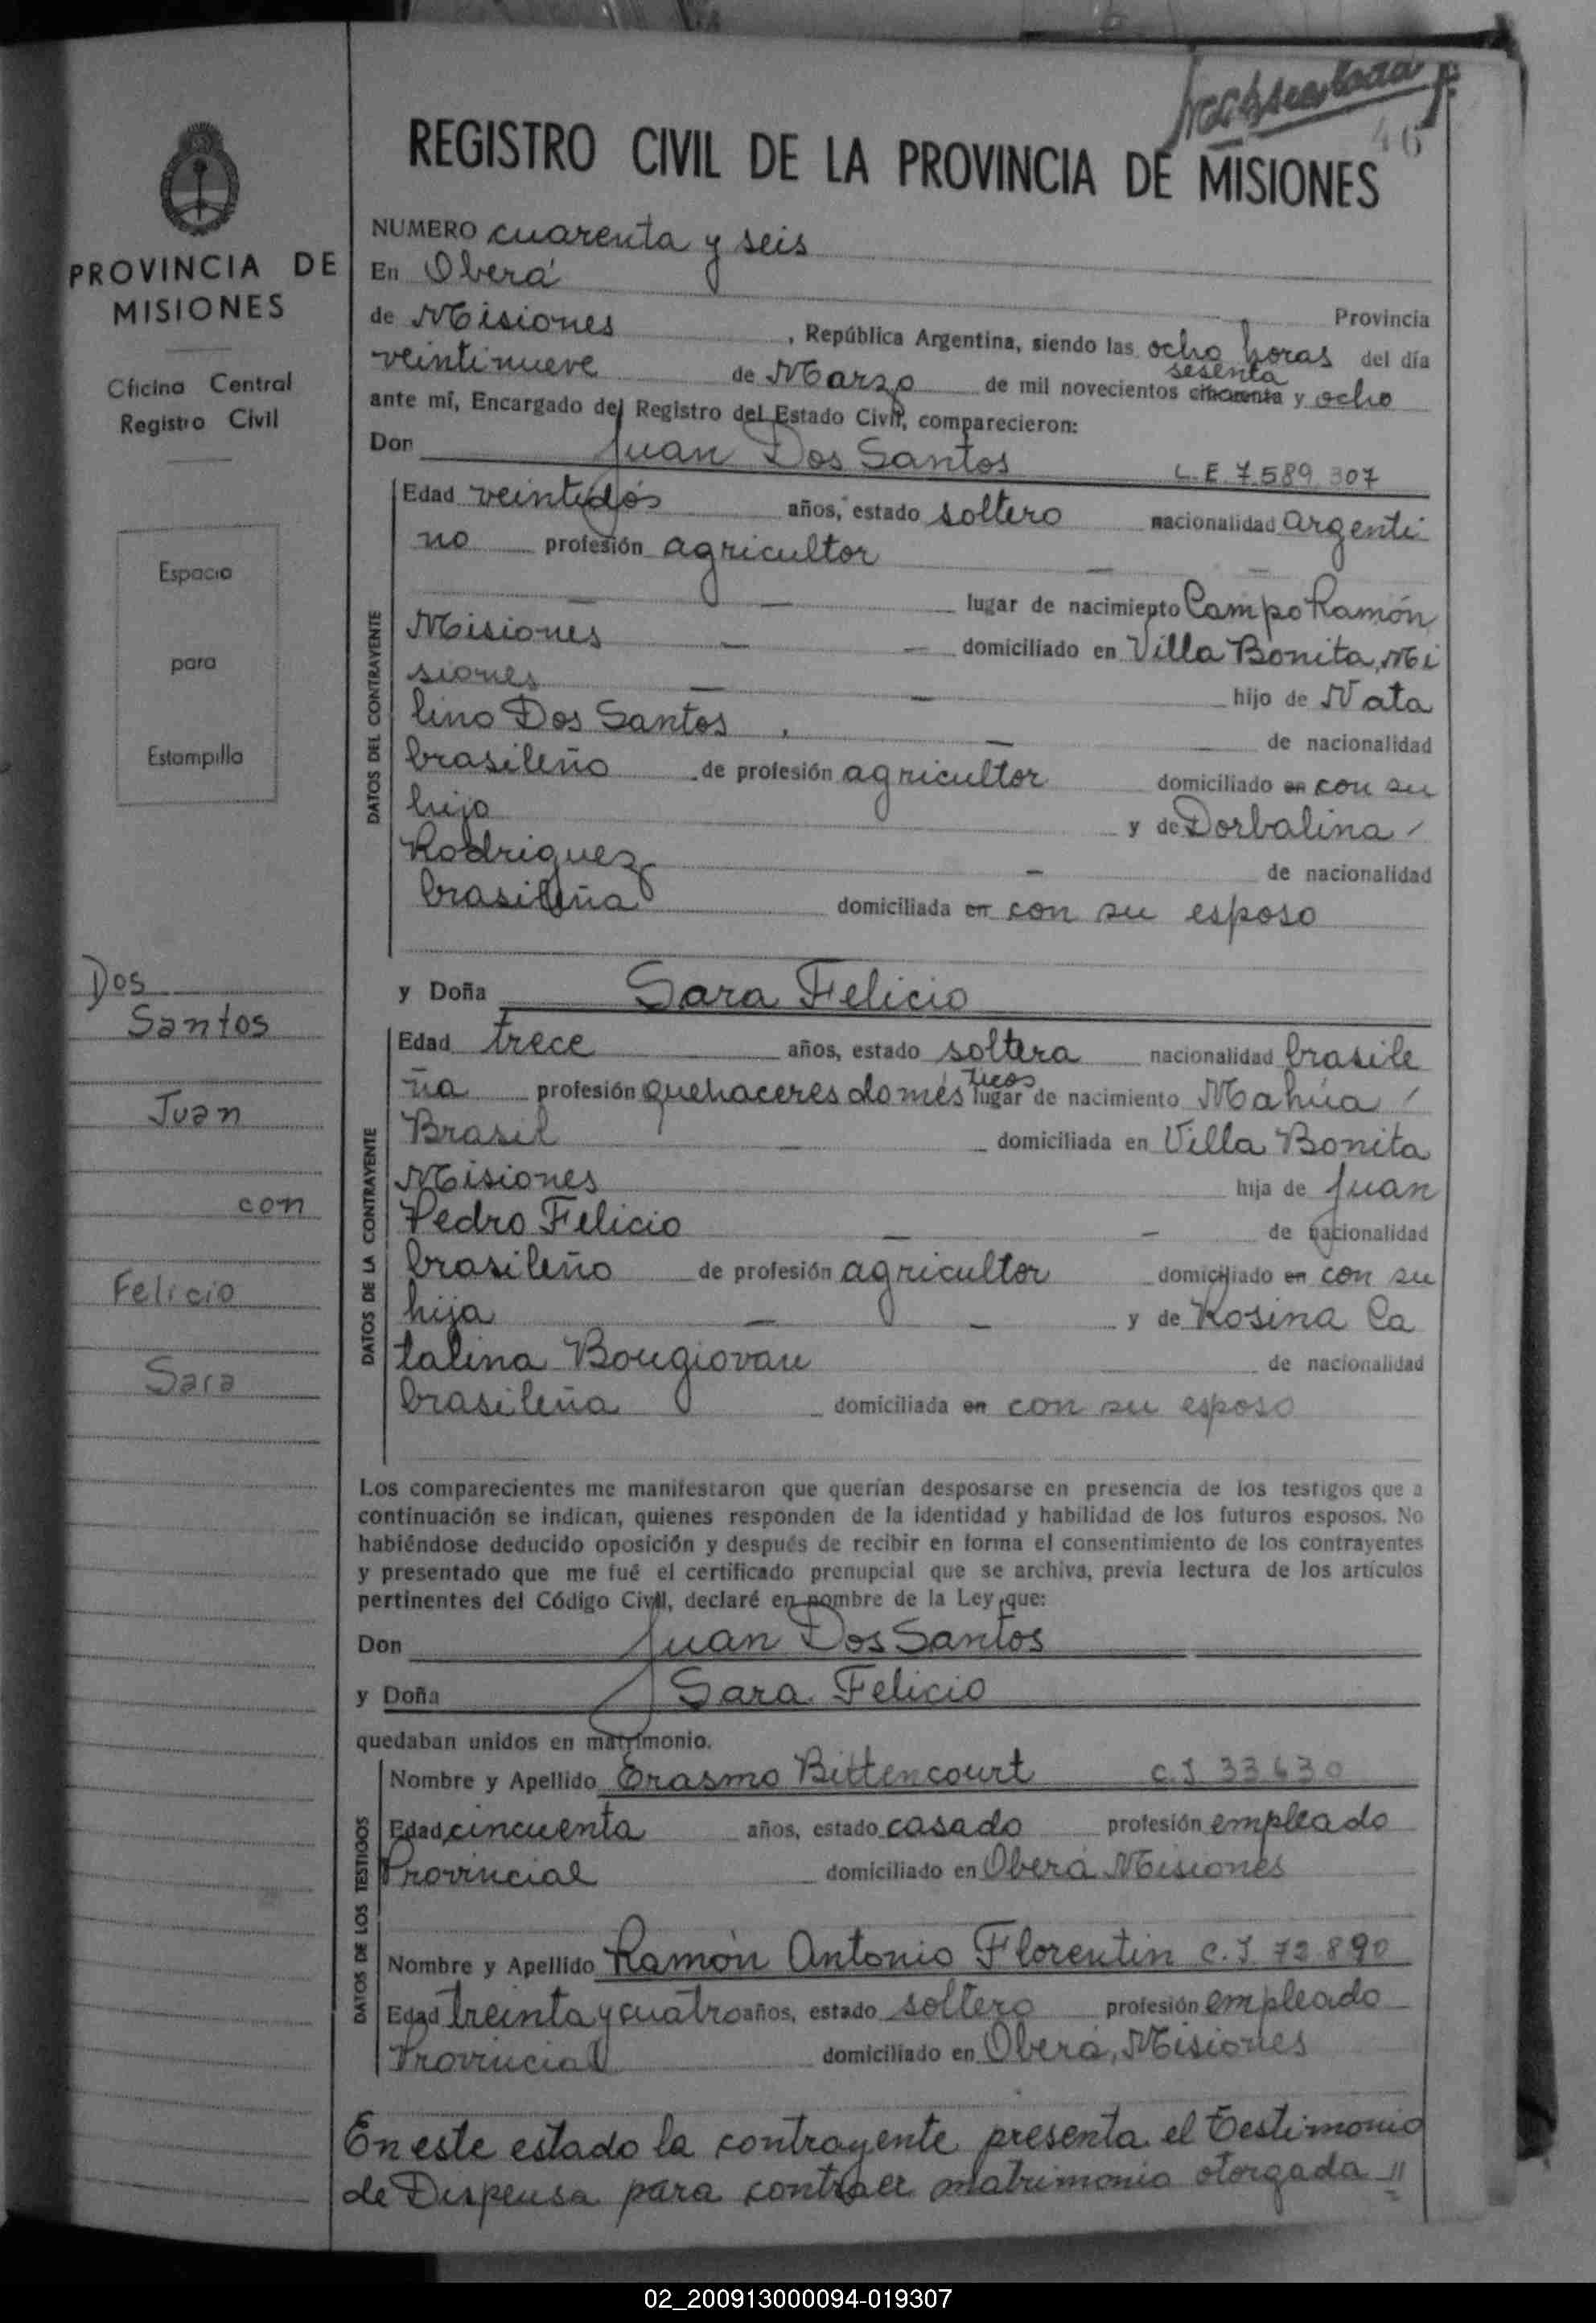 46
REGISTRO CIVIL DE LA PROVINCIA DE MISIONES
PROVINCIA DE
MISIONES
Oficina Central
Registro Civil
Espacio
para
Estampilla
Dos
Santos
Juan
con
Felicio
Sara
NUMERO cuarenta y seis
En Oberá
Provincia
de Misiones, República Argentina, siendo las ocho horas del día
veintinueve de Marzo de mil novecientos cincuenta sesenta y ocho
ante mí, Encargado del Registro del Estado Civil, comparecieron:
Don Juan Dos Santos L.E. 7.589.307
DATOS DEL CONTRAYENTE
Edad veintidós años, estado soltero nacionalidad argenti
no profesión agricultor
lugar de nacimiento Campo Ramón
Misiones domiciliado en Villa Bonita, Mi
siones hijo de Nata
lino Dos Santos, de nacionalidad
brasileño de profesión agricultor domiciliado en con su
hijo y de Dorbalina
Rodriguez de nacionalidad
brasileña domiciliada en con su esposo
y Doña Sara Felicio
DATOS DE LA CONTRAYENTE
Edad trece años, estado soltera nacionalidad brasile
ña profesión quehaceres domésticos lugar de nacimiento Mahúa
Brasil domiciliada en Villa Bonita
Misiones hija de Juan
Pedro Felicio de nacionalidad
brasileño de profesión agricultor domiciliado en con su
hija y de Rosina Ca
talina Bougiovan de nacionalidad
brasileña domiciliada en con su esposo
Los comparecientes me manifestaron que querían desposarse en presencia de los testigos que a
continuación se indican, quienes responden de la identidad y habilidad de los futuros esposos. No
habiéndose deducido oposición y después de recibir en forma el consentimiento de los contrayentes
y presentado que me fué el certificado prenupcial que se archiva, previa lectura de los artículos
pertinentes del Código Civil, declaré en nombre de la Ley que:
Don Juan Dos Santos
y Doña Sara Felicio
quedaban unidos en matrimonio.
DATOS DE LOS TESTIGOS
Nombre y Apellido Erasmo Bittencourt C.I 33.630
Edad cincuenta años, estado casado profesión empleado
Provincial domiciliado en Oberá Misiones
Nombre y Apellido Ramón Antonio Florentin C.I 72.890
Edad treinta y cuatro años, estado soltero profesión empleado
Provincial domiciliado en Oberá, Misiones
En este estado la contrayente presenta el testimonio
de Dispensa para contraer matrimonio otorgada //
02_200913000094-019307